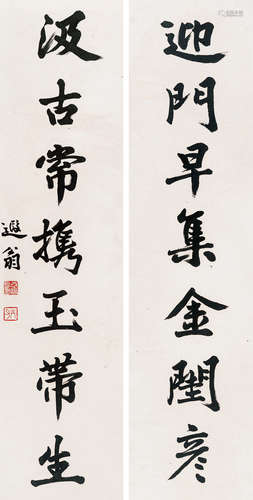 迎門早集金閨彥
汲古常攜玉帶生
遐翁